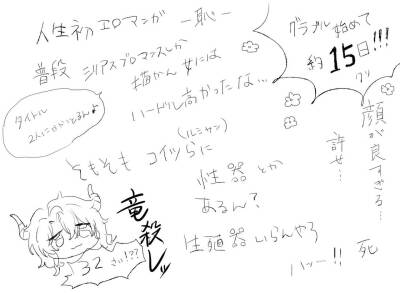 人生初エロマンガ -恥-
普段シリアスブロマンスしか
描かん女には
ハードル高かったな…
グラブル始めて
約15日!!!
タイトル
そもそもコイツらに
(ルシサン)
性器とか
あるん?
生殖器いらんやろ
ハッー!!
顔が良すぎる…
許せ…
死
竜殺しッ
32さい!??